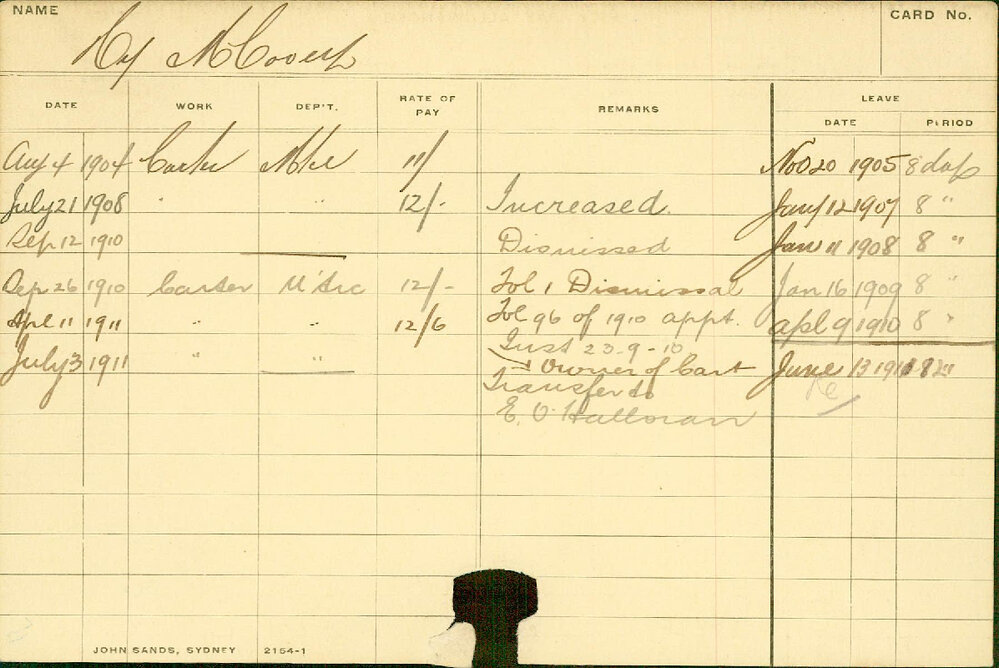 NAME
CARD No.
Hy McCoverty
DATE WORK DEP'T. RATE OF PAY REMARKS LEAVE
DATE PERIOD
Aug 4 1904 Carter 11/ Nov 20 1905 8 days
July 21 1908 " " 12/- Increased. Jany 12 1907 8 "
Sep 12 1910 Dismissed Jan 11 1908 8 "
Sep 26 1910 Carter 12/- Fol 1 Dismissal Jan 16 1909 8 "
Apl 11 1911 " " 12/6 Fol 96 of 1910 appt. Apl 9 1910 8 "
Just 23-9-10
July 3 1911 " " Owner of Cart June 13 1911 8 "
Transfer to
E. O'Halloran
JOHN SANDS, SYDNEY 2154-1